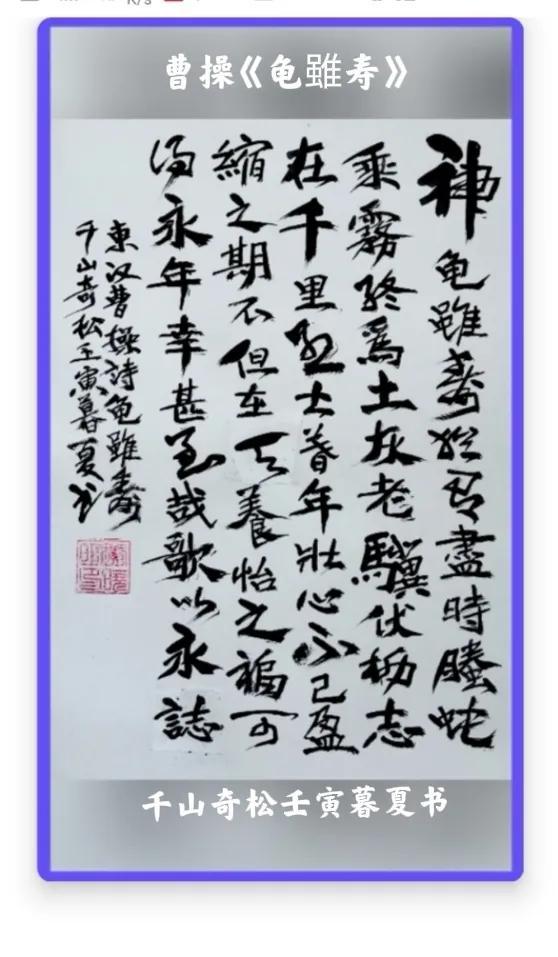 K/s
曹操《龟雖寿》
神龟雖壽猶有盡時螣蛇
乘霧終爲土灰老驥伏枥志
在千里烈士暮年壯心不已盈
縮之期不但在天養怡之福可
得永年幸甚至哉歌以永誌
東汉曹操詩龟雖壽
千山奇松壬寅暮夏书
千山奇松壬寅暮夏书